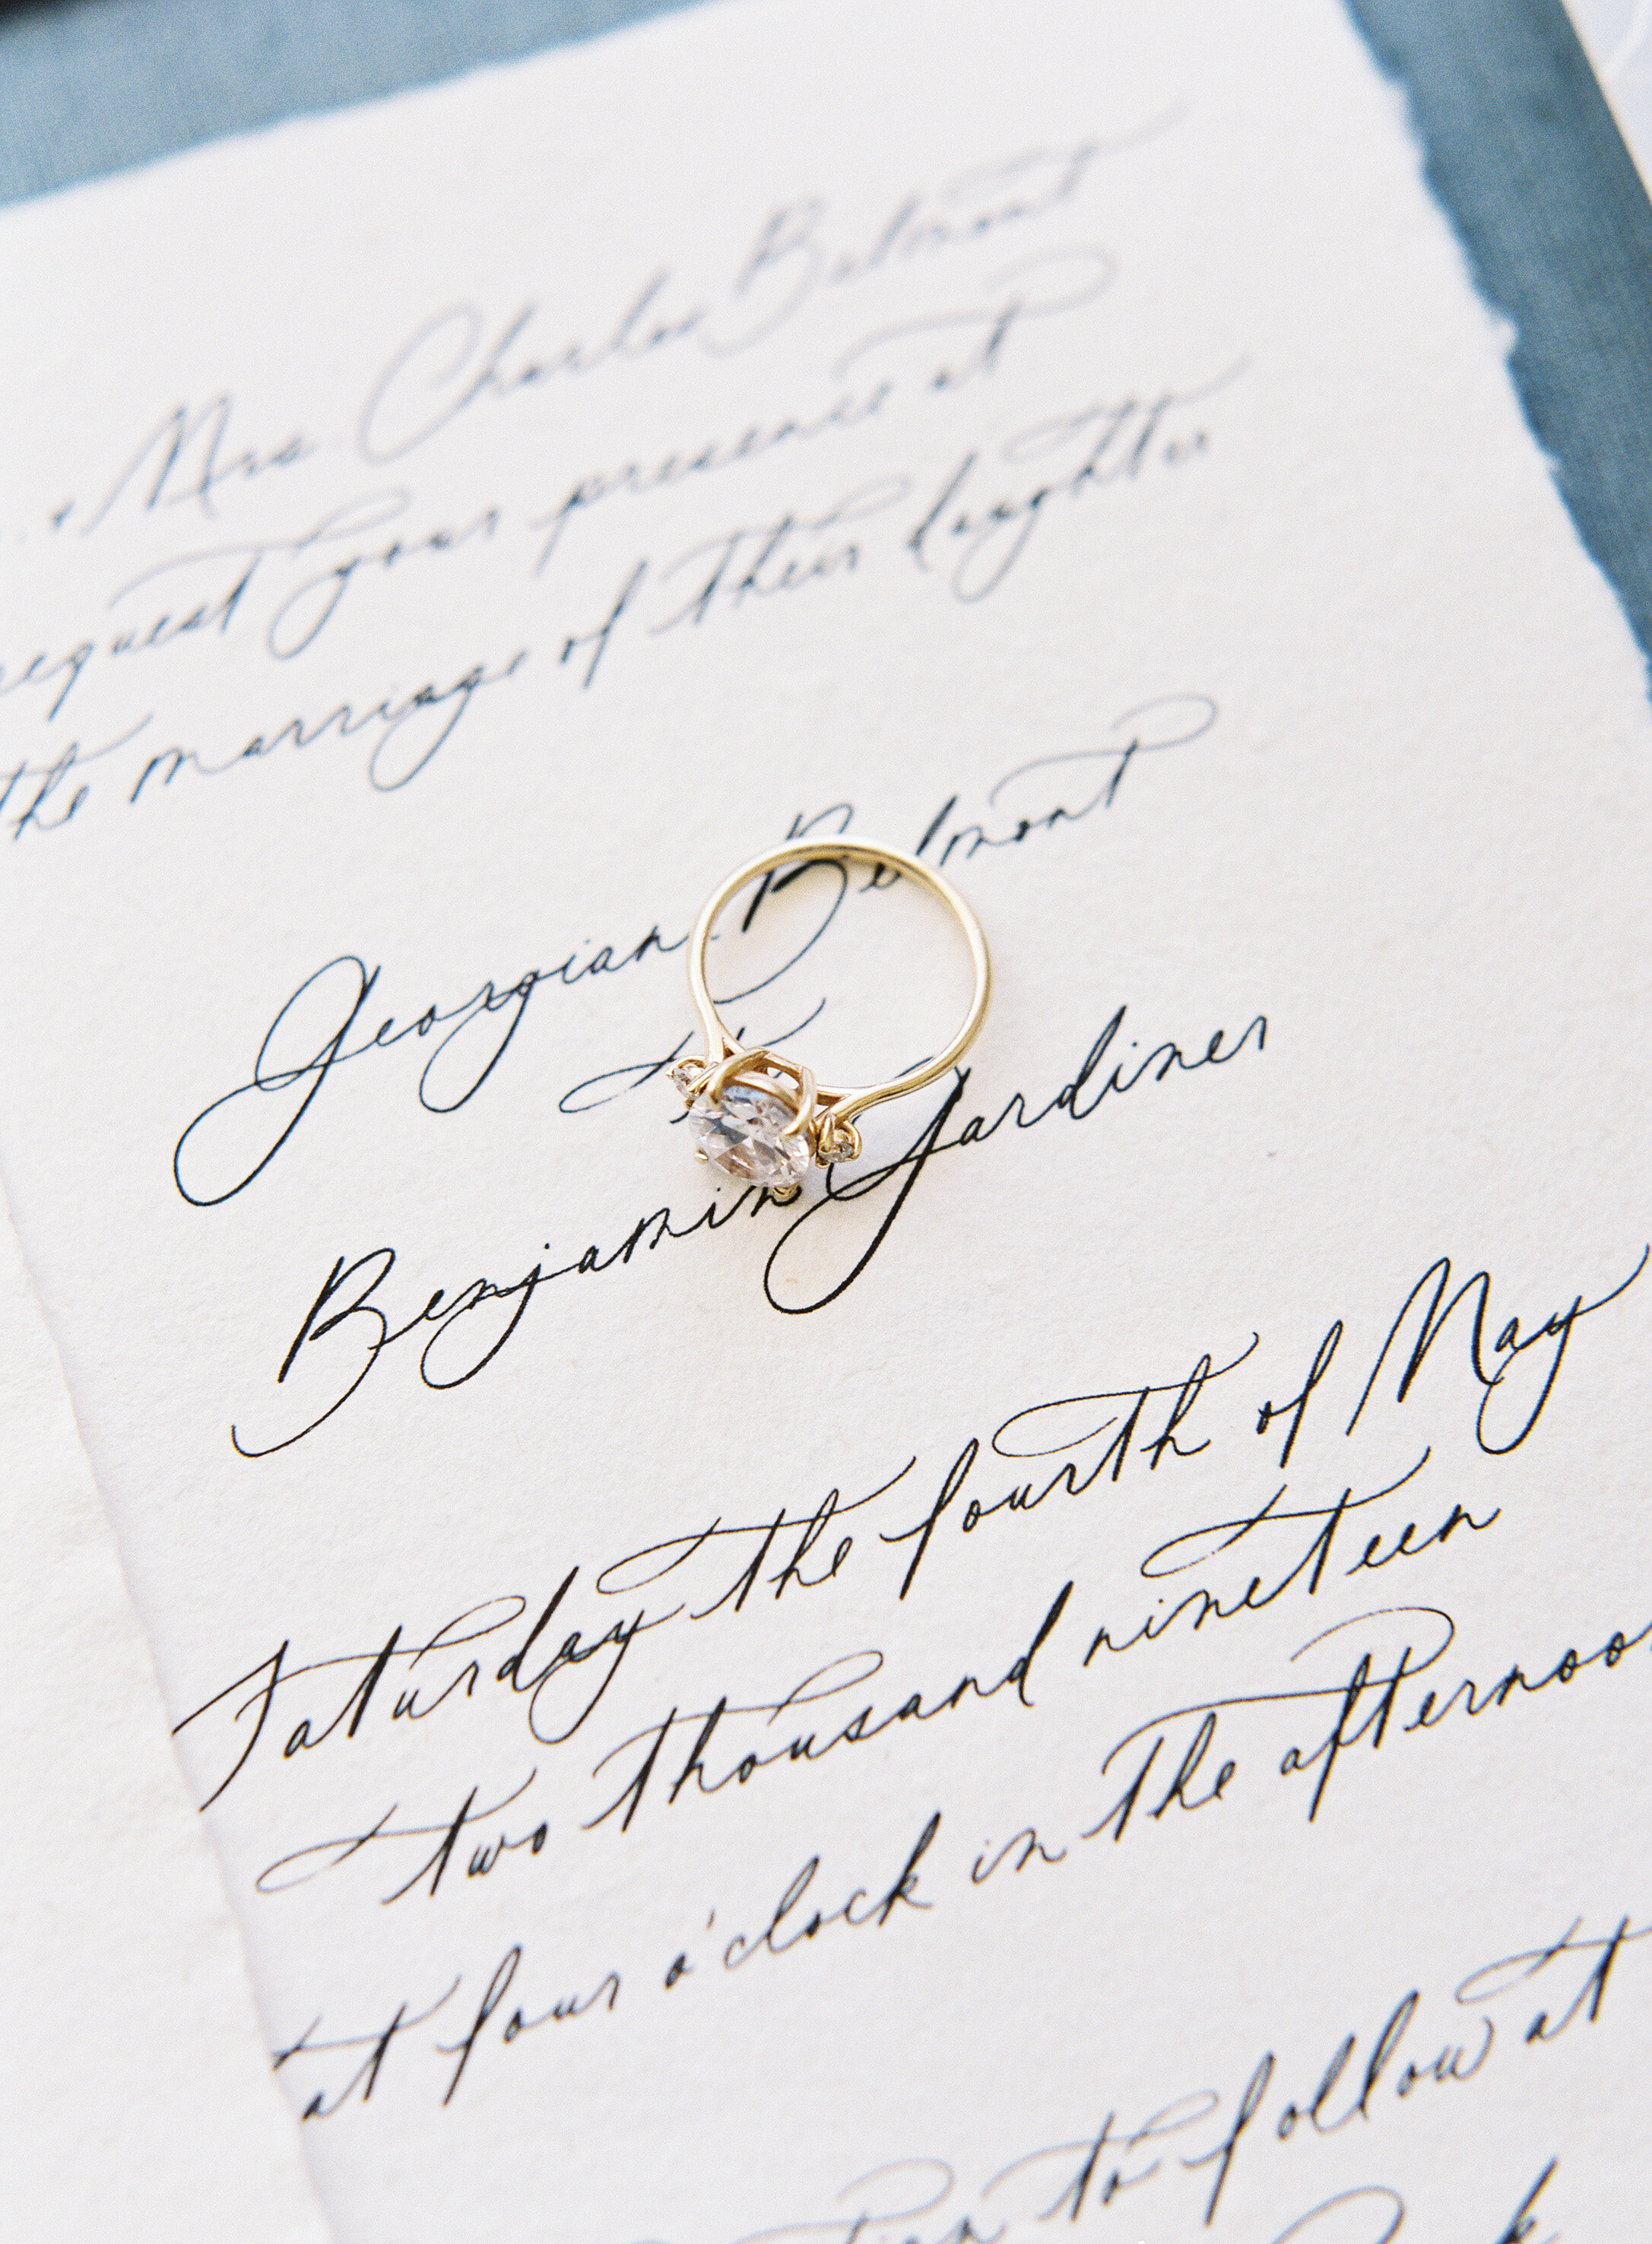 + Mrs Charles Belmont
request your presence at
the marriage of their daughter
Georgian Belmont
to
Benjamin Gardiner
Saturday the fourth of May
two thousand nineteen
at four o'clock in the afternoon
to follow at